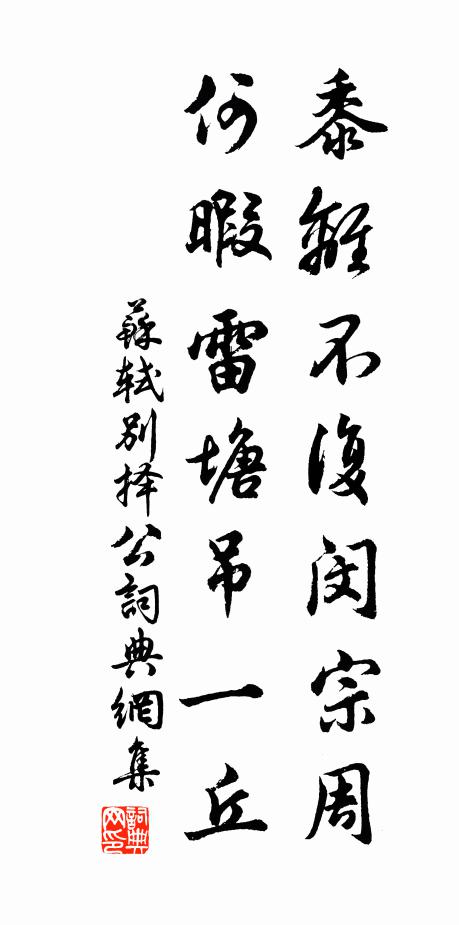 黍離不復閔宗周
何暇雷塘吊一丘
蘇轼别择公詞典網集
詞典网印